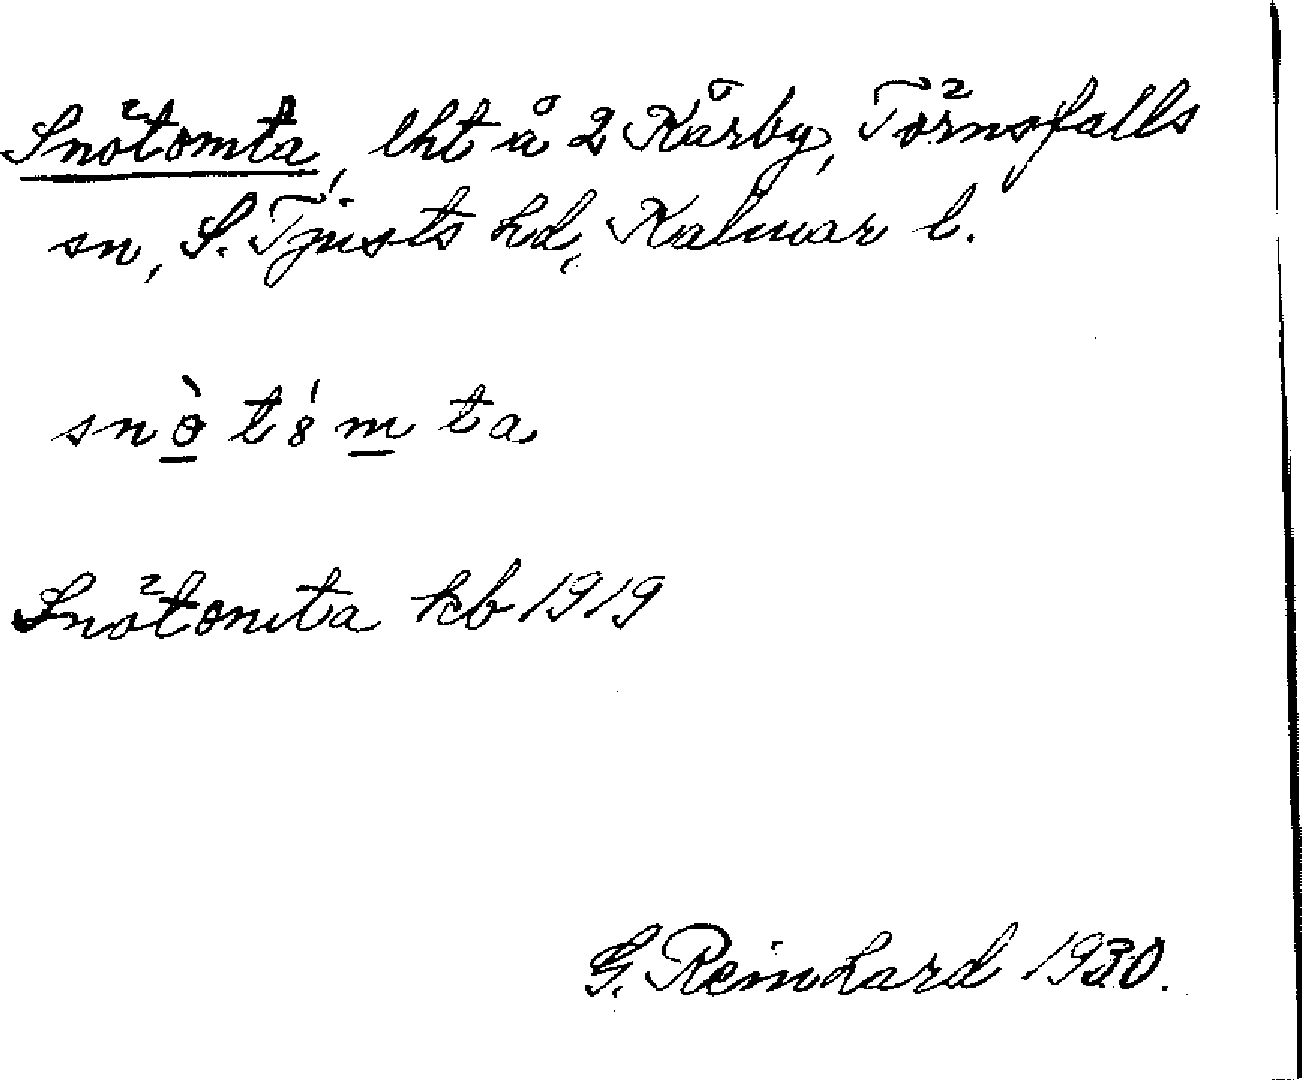 Snötomta, lht å 2 Kårby, Törnsfalls
sn, S. Tjusts hd, Kalmar l.
snò̱ tó̱m ta
Snötomta kb 1919
G. Reinhard 1930.